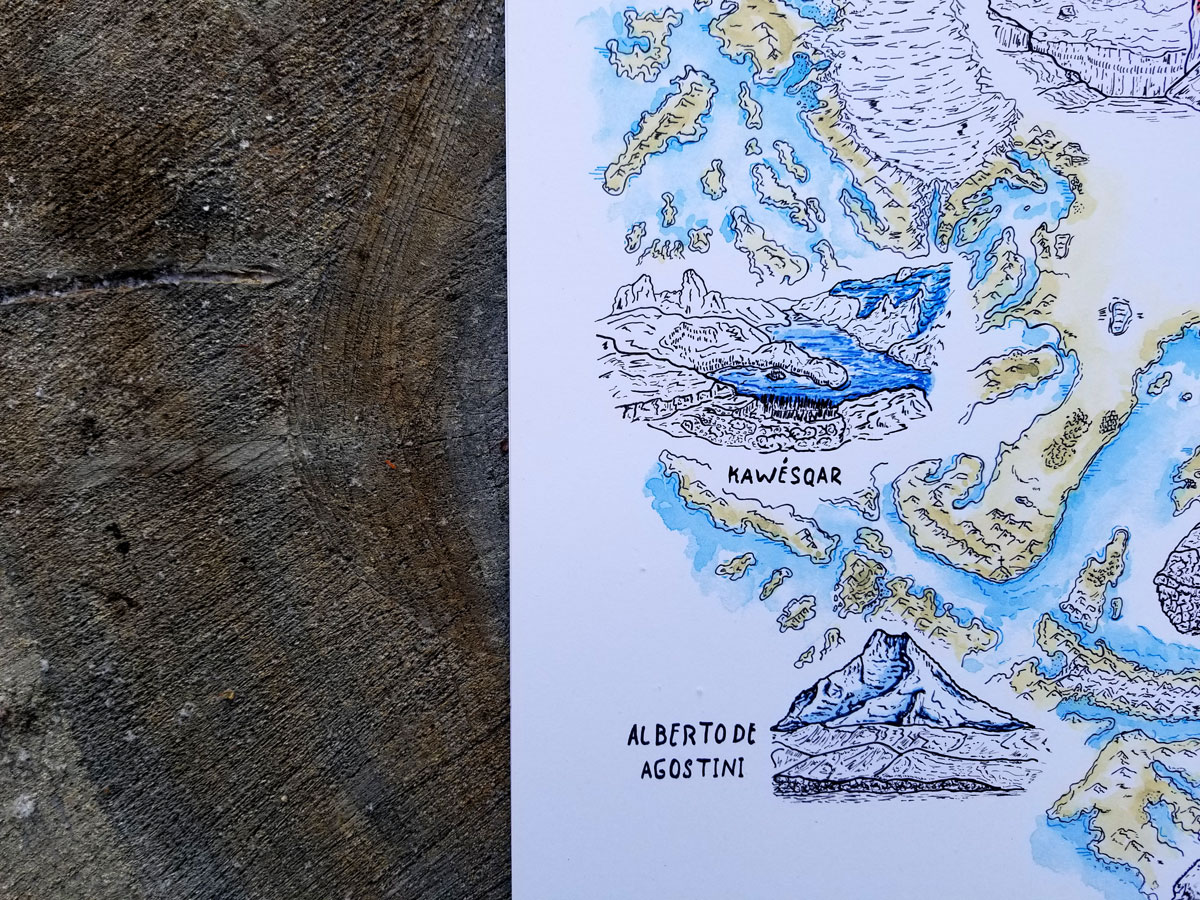 KAWÉSQAR
ALBERTO DE
AGOSTINI